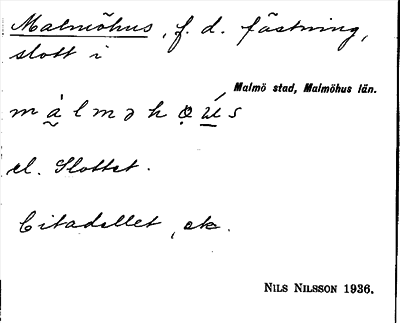 Malmöhus, f. d. fästning,
slott i
Malmö stad, Malmöhus län.
el. Slottet.
Citadellet, ak.
NILS NILSSON 1936.